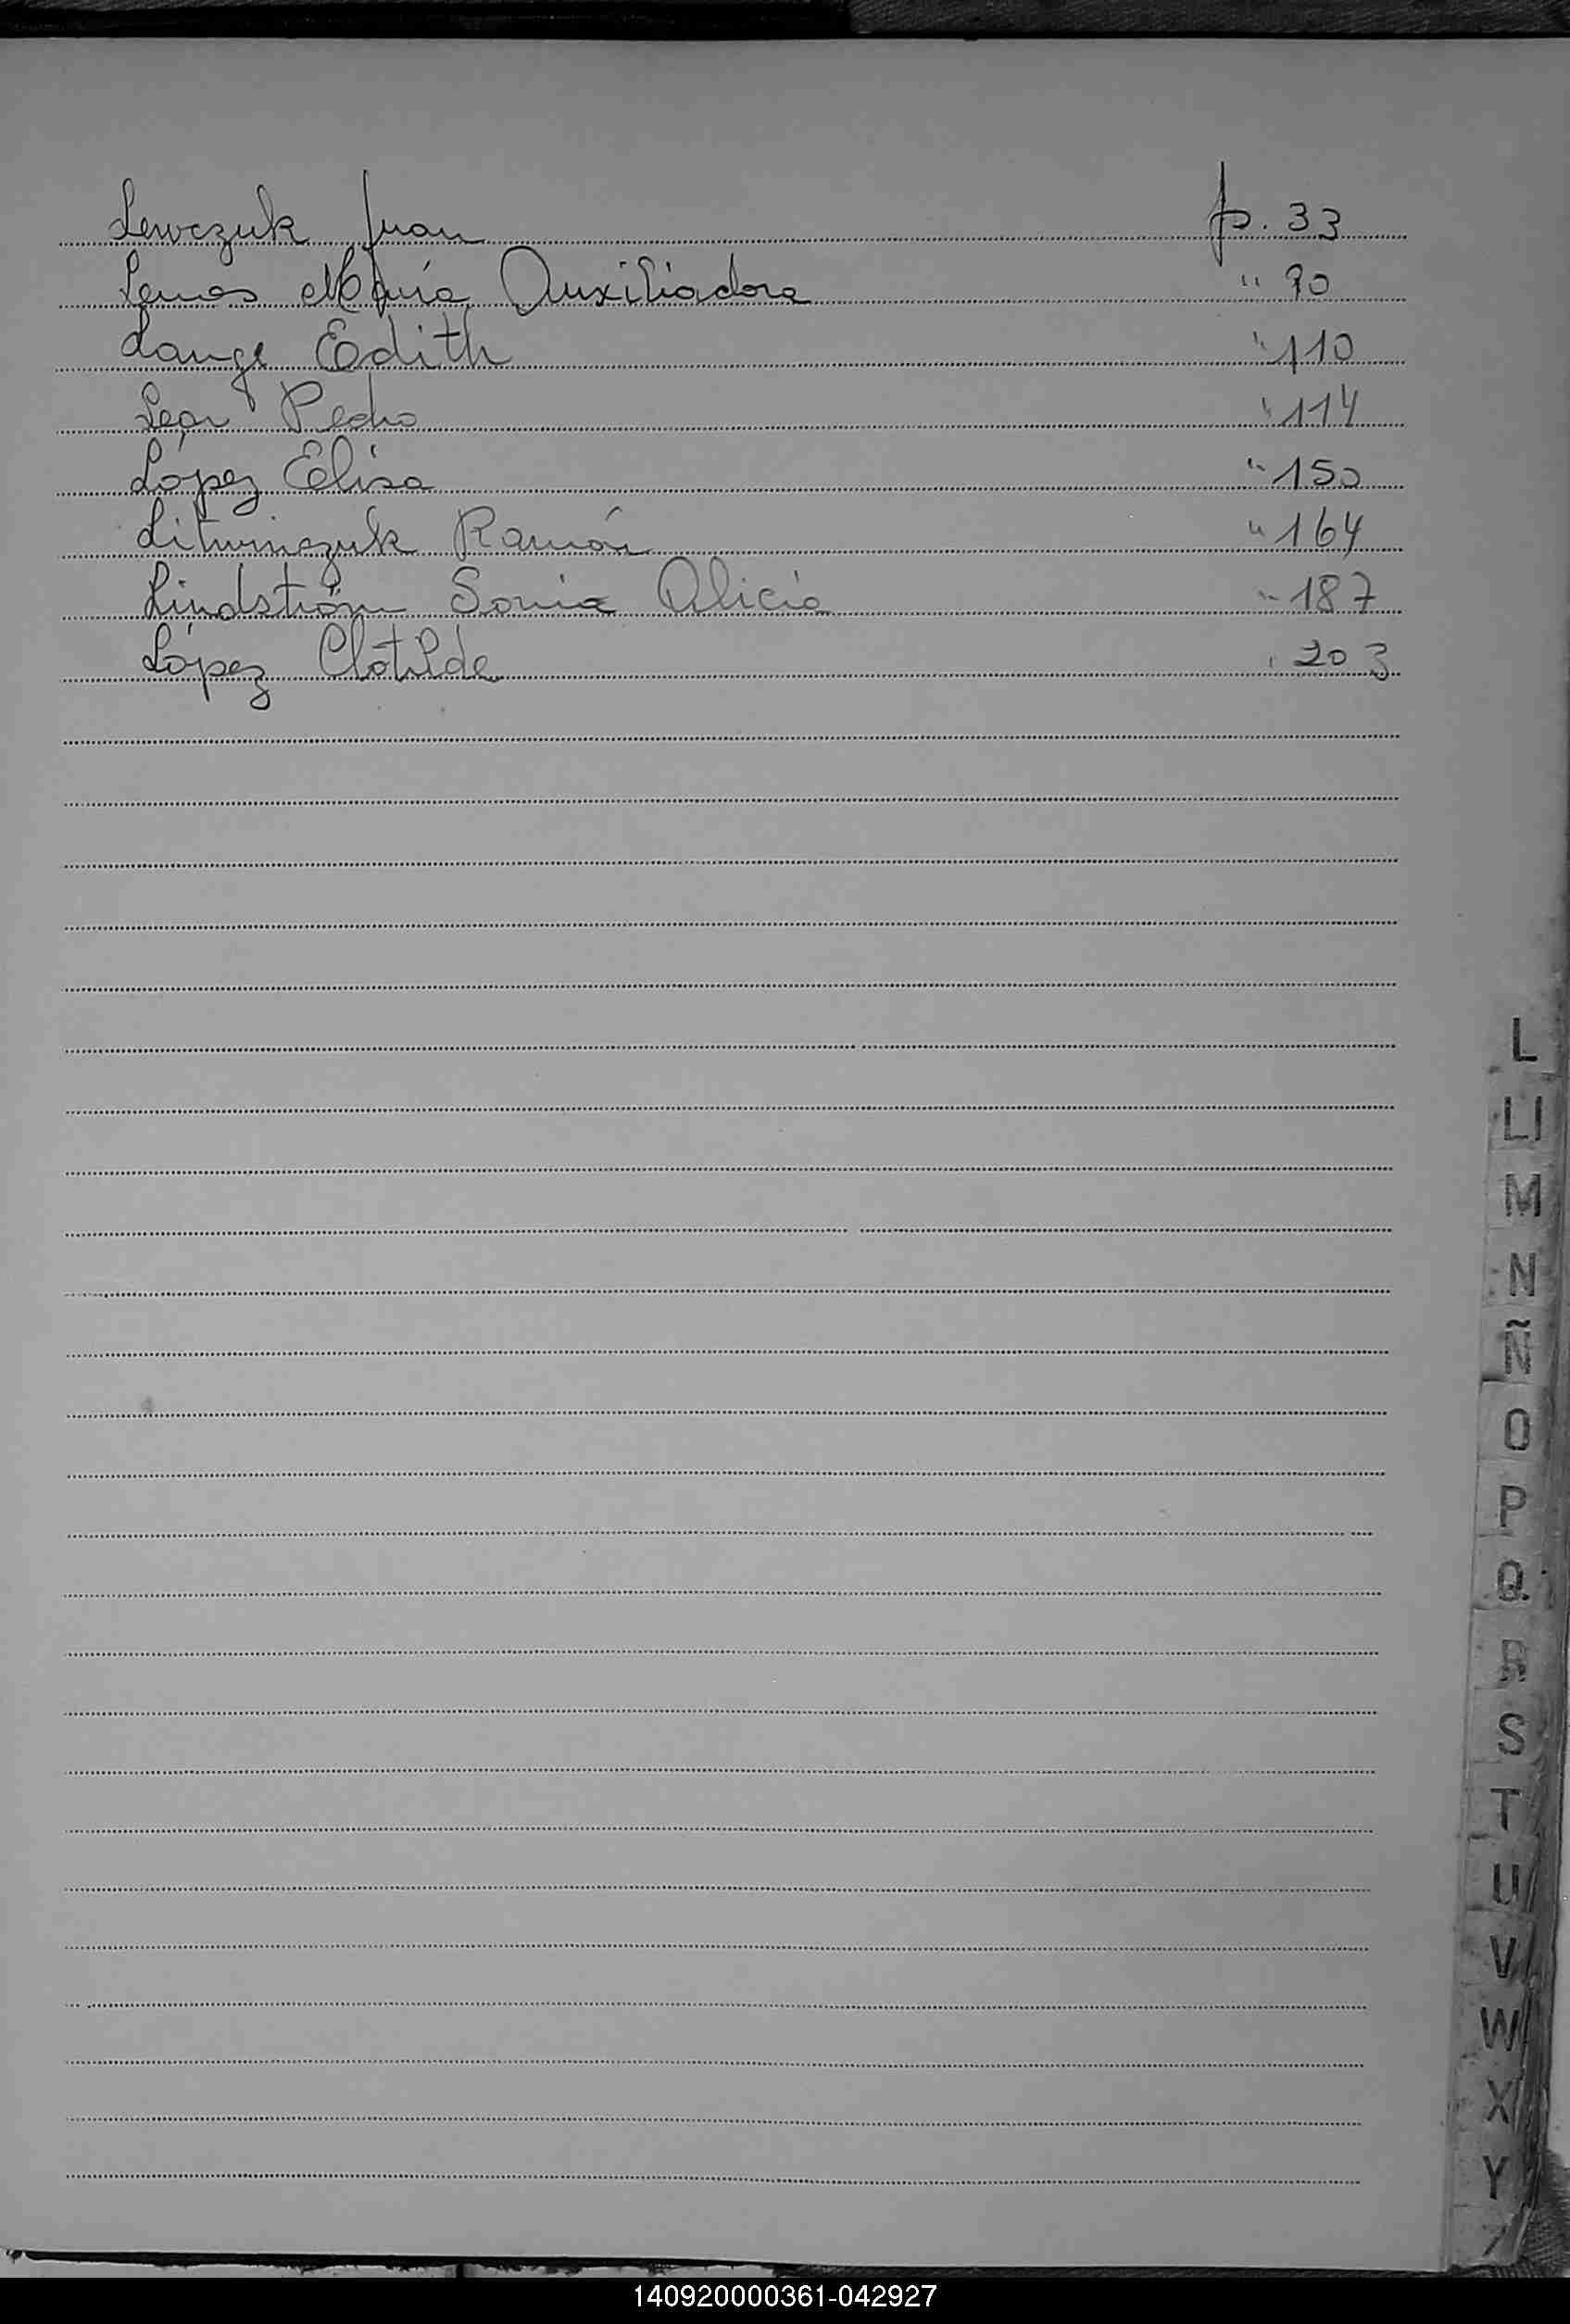 Lewczuk Juan p. 33
Lemos María Auxiliadora " 90
Lange Edith " 110
Lear Pedro " 114
López Elisa " 150
Litwinczuk Ramón " 164
Lindström Sonia Alicia " 187
López Clotilde " 203
L
Ll
M
N
Ñ
O
P
Q
R
S
T
U
V
W
X
Y
Z
140920000361-042927